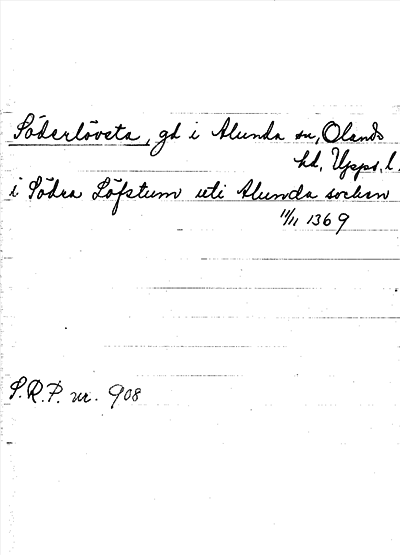 Söderlövsta, gd i Alunda sn, Olands
hd, Upps. l.
i Södra Löfstum uti Alunda sochan
11/11 1369
S.R.P. nr. 908